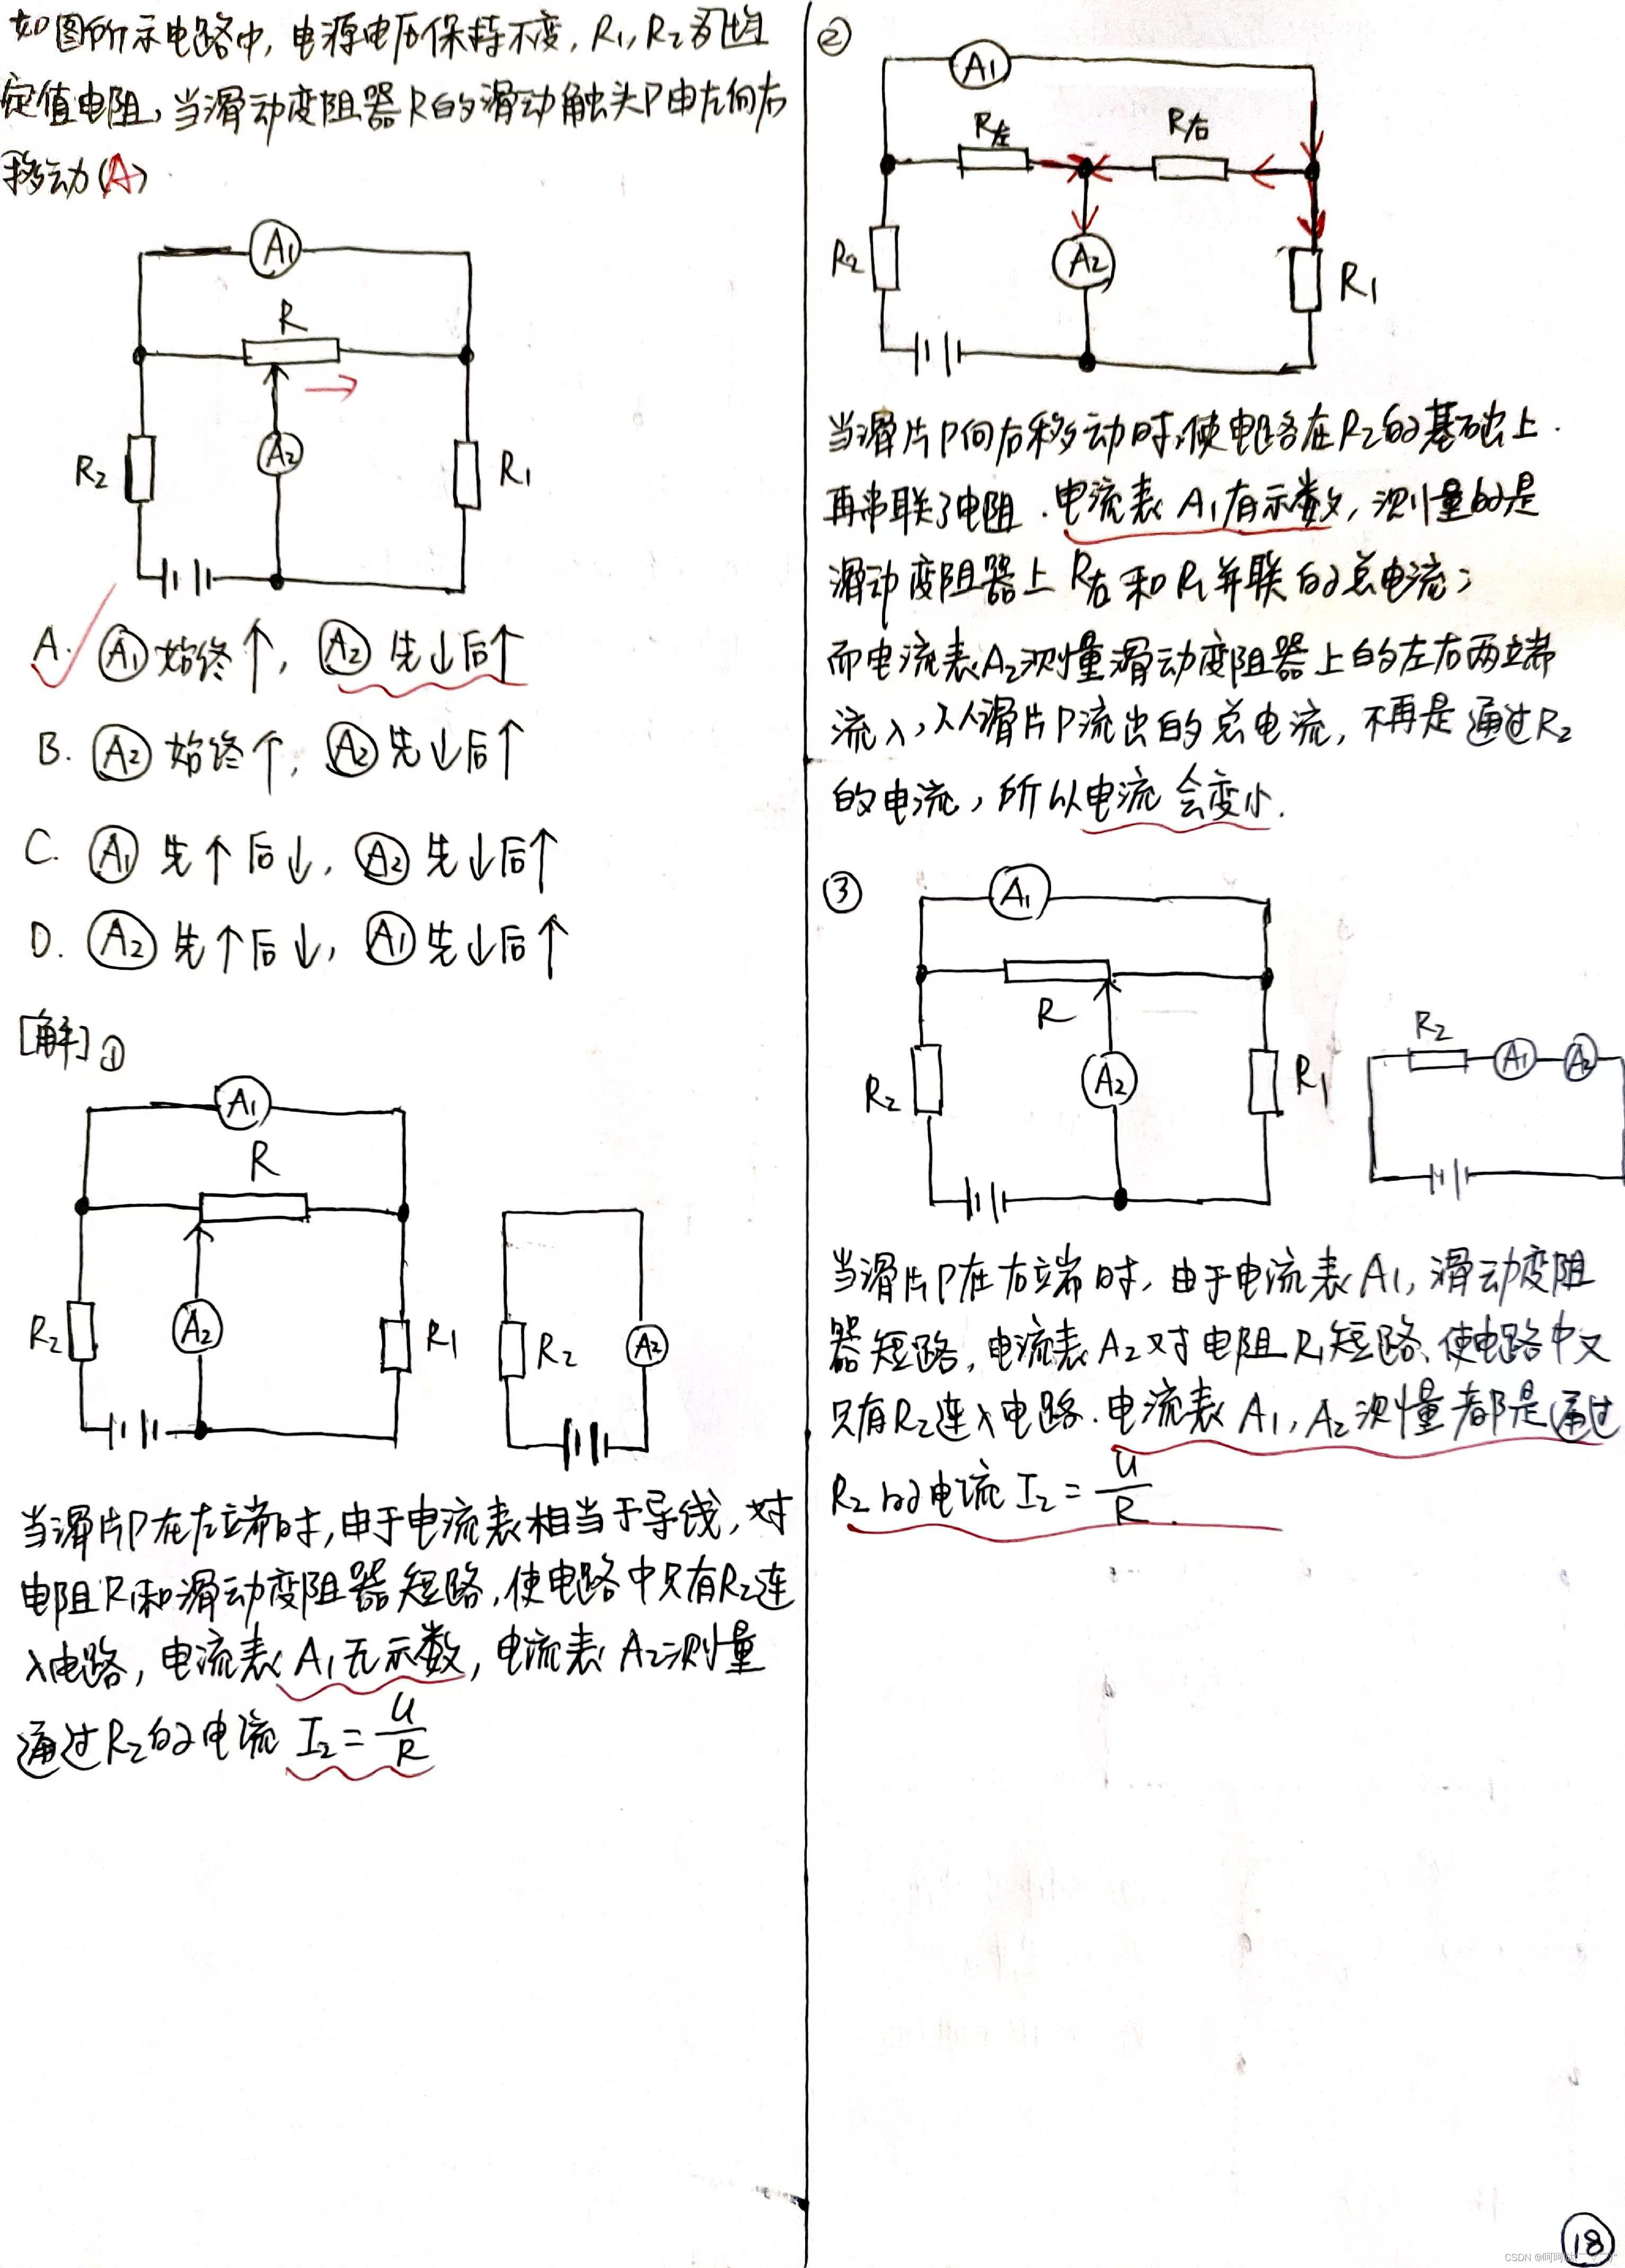 如图所示电路中,电源电压保持不变,R₁,R₂为
定值电阻,当滑动变阻器R的滑动触头P由左向右
移动(A)
A₁
R
A₂
R₂
R₁
A. A₁始终↑, A₂先↓后↑
B. A₂始终个, A₂先↓后↑
C. A₁先个后↓, A₂先↓后↑
D. A₂先个后↓, A₁先↓后↑
[解]①
A₁
R
R₂
A₂
R₁
R₂
A₂
当滑片P在左端时,由于电流表相当于导线,对
电阻R₁和滑动变阻器短路,使电路中只有R₂连
入电路,电流表A₁无示数,电流表A₂测量
通过R₂的电流 I₂=U/R
②
A₁
R左
R右
R₂
A₂
R₁
当滑片P向右移动时,使电路在R₂的基础上.
再串联了电阻.电流表A₁有示数,测量的是
滑动变阻器上R右和R₁并联的总电流;
而电流表A₂测量滑动变阻器上的左右两端
流入,从滑片P流出的总电流,不再是通过R₂
的电流,所以电流会变小.
③
A₁
R
R₂
A₂
R₁
R₂
A₁
A₂
当滑片P在右端时,由于电流表A₁,滑动变阻
器短路,电流表A₂对电阻R₁短路、使电路中又
只有R₂连入电路.电流表A₁,A₂测量都是通过
R₂的电流 I₂=U/R.
18